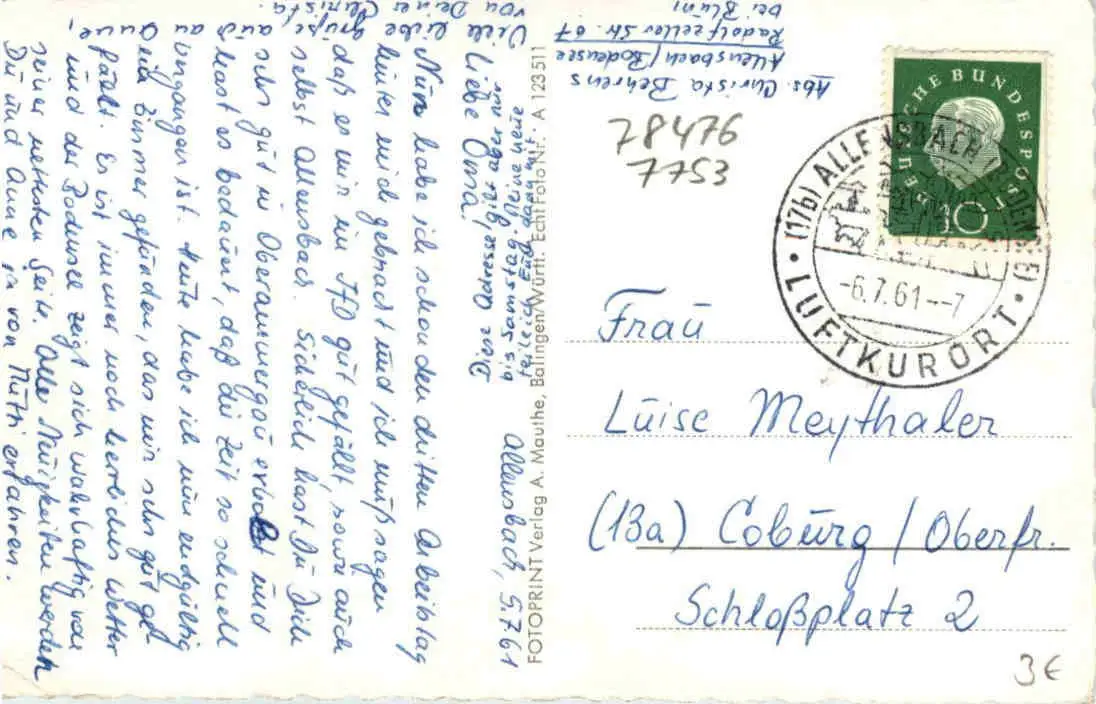 Allensbach, 5.7.61
Liebe Oma!
Nun habe ich schon den dritten Arbeitstag
hinter mich gebracht und ich muß sagen
daß es mir im IfD gut gefällt, sowie auch
selbst Allensbach. Sicherlich hast Du Dich
sehr gut in Oberammergau erholt und
hast es bedauert, daß die Zeit so schnell
vergangen ist. Heute habe ich nun endgültig
ein Zimmer gefunden, das mir sehr gut ge-
fällt. Es ist immer noch herrliches Wetter
und der Bodensee zeigt sich wahrhaftig von
seiner nettesten Seite. Alle Neuigkeiten werden
Du und Anne ja von Mutti erfahren.
Viele liebe
Grüße
auch
an
von Deiner Christa.
bis Samstag. Meine neue
Abs. Christa Behrens
Allensbach/Bodensee
Radolfzeller Str. 67
bei Blum
FOTOPRINT Verlag A. Mauthe, Balingen/Württ. Echt Foto Nr.: A 123511
78476
7753
DEUTSCHE BUNDESPOST
10
(17b) ALLENSBACH (BODENSEE)
-6.7.61--7
LUFTKURORT
Frau
Luise Meythaler
(13a) Coburg/Oberfr.
Schloßplatz 2
3€